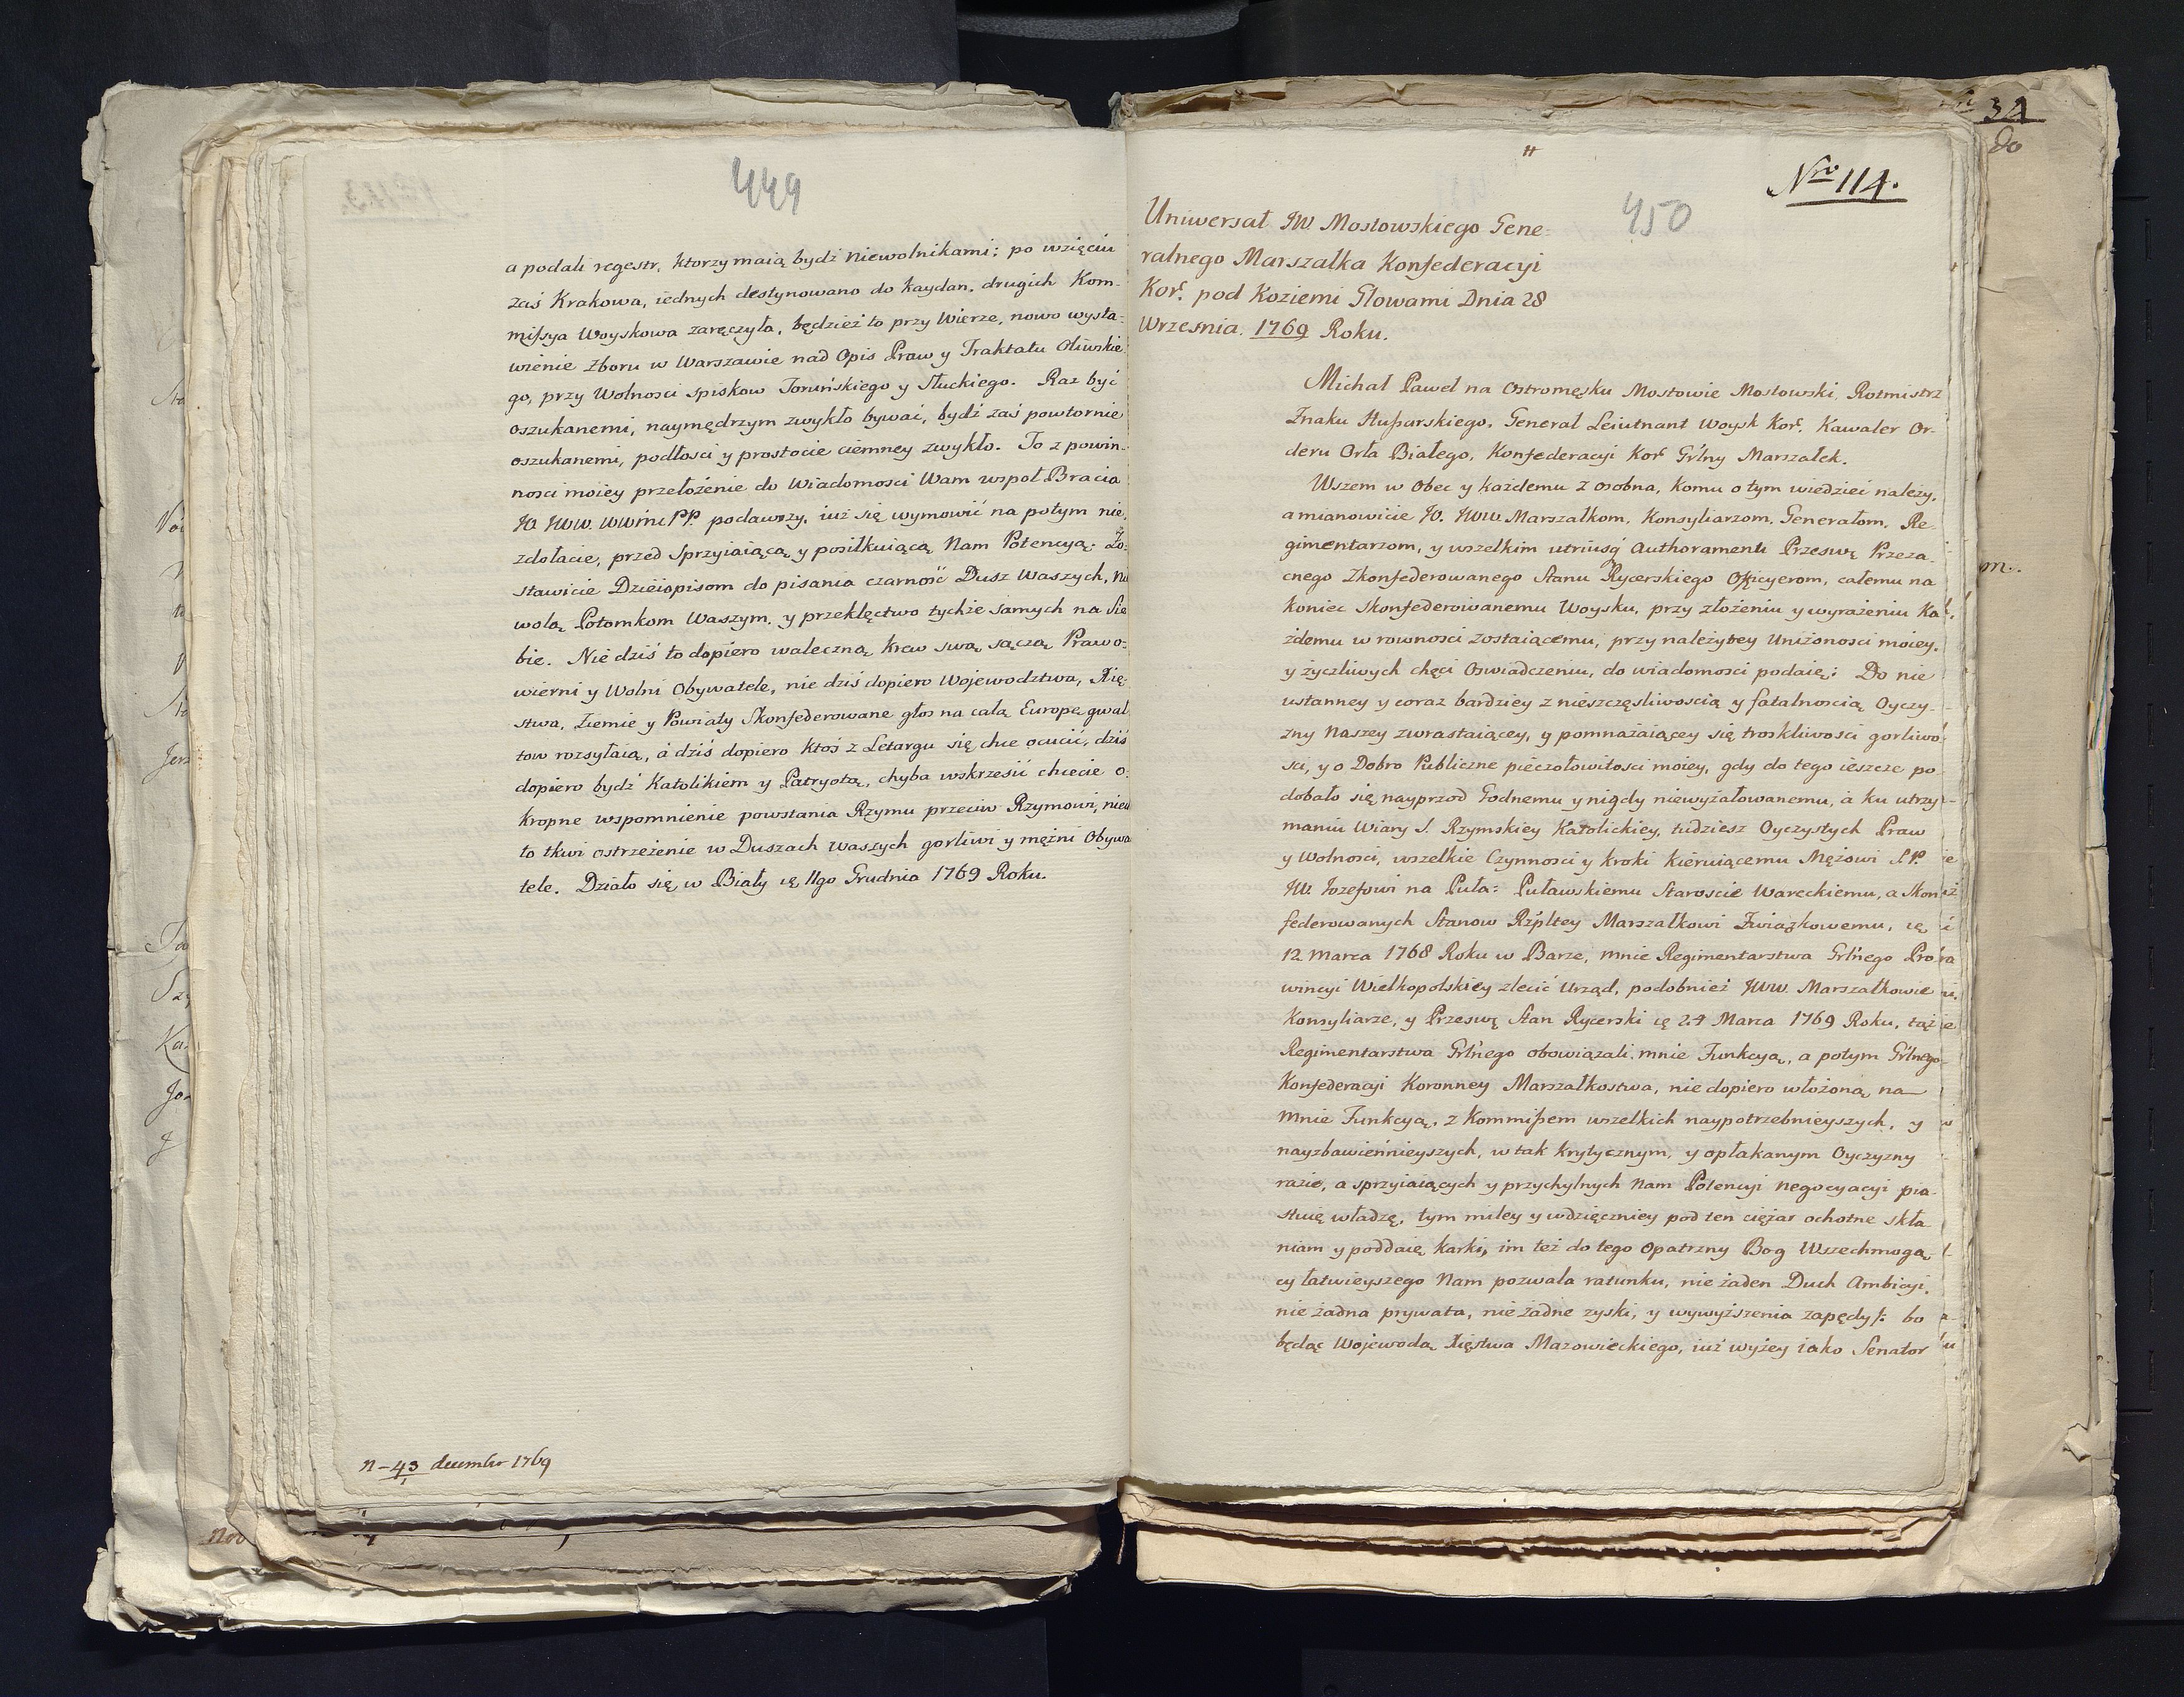 449
a podali regestr, ktorzy maią bydź niewolnikami; po wzięciu
zaś Krakowa, iednych destynowano do kaydan, drugich Kom-
mißya Woyskowa zaręczyła, będzież to przy Wierze, nowo wysta=
wienie Zboru w Warszawie nad Opis Praw y Traktatu Oliwskie
go, przy Wolnosci spiskow Toruńskiego y Słuckiego. Raz być
oszukanemi, naymędrzym zwykło bywać, bydź zaś powtornie
oszukanemi, podłosci y prostocie ciemney zwykło. To z powin-
nosci moiey przełożenie do Wiadomosci Wam wspoł Bracia
JO. JWW. WWńi PP. podawszy, iuż się wymowić na potym nie
zdołacie, przed Sprzyiaiącą y posiłkuiącą Nam Potencyą; Zo=
stawicie Dzieiopisom do pisania czarność Dusz Waszych, nie
wolą Potomkom Waszym, y przeklęctwo tychże samych na Sie
bie. Nie dziś to dopiero waleczną krew swą sączą Prawo=
wierni y Wolni Obywatele, nie dziś dopiero Wojewodztwa, Xię
stwa, Ziemie y Powiaty Skonfederowane głos na całą Europę gwał
tow rozsyłaią, á dziś dopiero ktoś z Letargu się chce ocucić, dziś
dopiero bydź Katolikiem y Patryotą, chyba wskrzesić chcecie o=
kropne wspomnienie powstania Rzymu przeciw Rzymowi, niech
to tkwi ostrzeżenie w Duszach Waszych gorliwi y mężni Obywa
tele. Działo się w Biały ię 11go Grudnia 1769 Roku.
n-43 decembr 1769
34
do
Nro 114.
450
Uniwersał JW. Mostowskiego Gene=
ralnego Marszałka Konfederacyi
Kor. pod Koziemi Głowami Dnia 28
Wrzesnia. 1769 Roku.
Michał Paweł na Ostromęsku Mostowie Mostowski, Rotmistrz
Znaku Hußarskiego, General Leiutnant Woysk Kor. Kawaler Or-
deru Orła Białego, Konfederacyi Kor Grlny Marszałek.
Wszem w Obec y każdemu z osobna, komu o tym wiedzieć należy,
a mianowicie JO. JWW. Marszałkom, Konsyliarzom, Generałom, Re-
gimentarzom, y wszelkim utriusq Authoramenti Przeswę Przeza-
cnego Zkonfederowanego Stanu Rycerskiego Officyerom, całemu na
koniec Skonfederowanemu Woysku, przy złożeniu y wyrażeniu Ka
żdemu w rownosci zostaiącemu, przy należytey Uniżonosci moiey,
y życzliwych chęci Oswiadczeniu, do wiadomosci podaię: Do nie
ustanney y coraz bardziey z nieszczęsliwoscią y fatalnoscią Oyczy-
zny Naszey zwrastaiącey, y pomnażaiącey się troskliwosci gorliwo
sci, y o Dobro Publiczne pieczołowitosci moiey, gdy do tego ieszcze po
dobało się nayprzod Godnemu y nigdy niewyżałowanemu, á ku utrzy-
maniu Wiary S. Rzymskiey Katolickiey, tudziesz Oyczystych Praw
y Wolnosci, wszelkie Czynnosci y kroki kieruiącemu Mężowi S.P.
JW. Jozefowi na Puła= Puławskiemu Staroscie Wareckiemu, a Skon
federowanych Stanow Rzpltey Marszałkowi Związkowemu, ię
12. Marca 1768 Roku w Barze, mnie Regimentarstwa Grlnego Pro
wincyi Wielkopolskiey zlecić Urząd, podobnież JWW. Marszałkowie
Konsyliarze, y Przeswę Stan Rycerski ię 24 Marca 1769 Roku, tąż
Regimentarstwa Grlnego obowiązali mnie Funkcyą, a potym Grlnego
Konfederacyi Koronney Marszałkostwa, nie dopiero włożoną na
mnie Funkcyą, z Kommißem wszelkich naypotrzebnieyszych, y
nayzbawiennieyszych, w tak krytycznym, y opłakanym Oyczyzny
razie, a sprzyiaiących y przychylnych Nam Potencyi negocyacyi pia-
stuię władzę, tym miley y wdzięczniey pod ten ciężar ochotne skła
niam y poddaię karki, im też do tego opatrzny Bog Wszechmogą
cy łatwieyszego Nam pozwala ratunku, nie żaden Duch Ambicyi,
nie żadna prywata, nie żadne zyski, y wywyższenia zapędy /: bo
będąc Wojewodą Xięstwa Mazowieckiego, iuż wyżey iako Senator